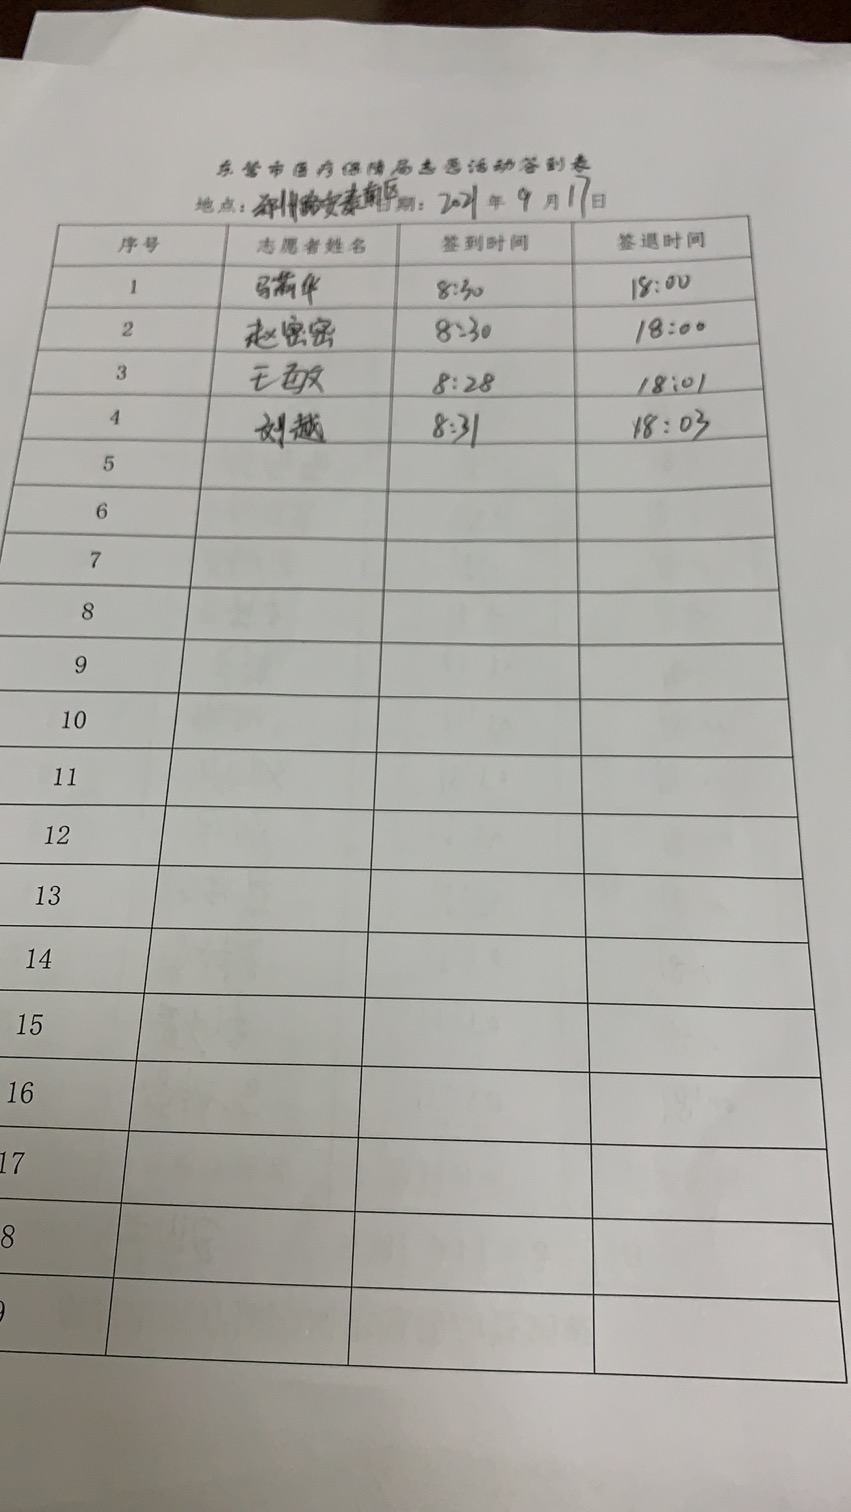 东营市医疗保障局志愿活动签到表
地点：郑州路安泰南区 日期：2021年9月17日
序号 志愿者姓名 签到时间 签退时间
1 马菊华 8:30 18:00
2 赵密密 8:30 18:00
3 王敏 8:28 18:01
4 刘越 8:31 18:03
5
6
7
8
9
10
11
12
13
14
15
16
17
8
9